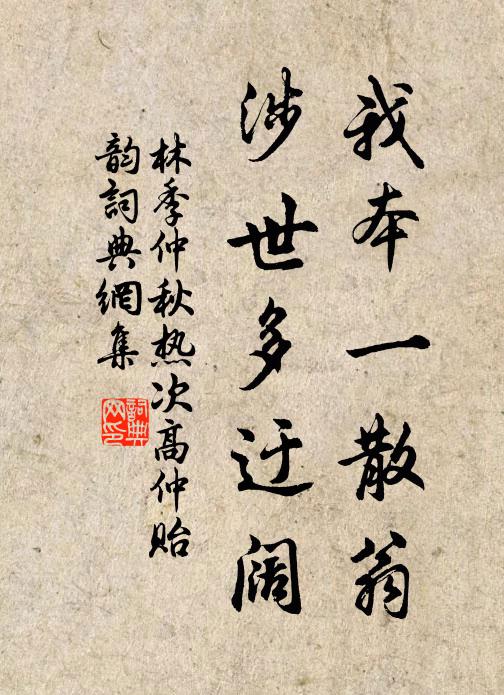 我本一散翁
涉世多迂阔
林季仲秋热次高仲贻
韵词典网集
詞典网印